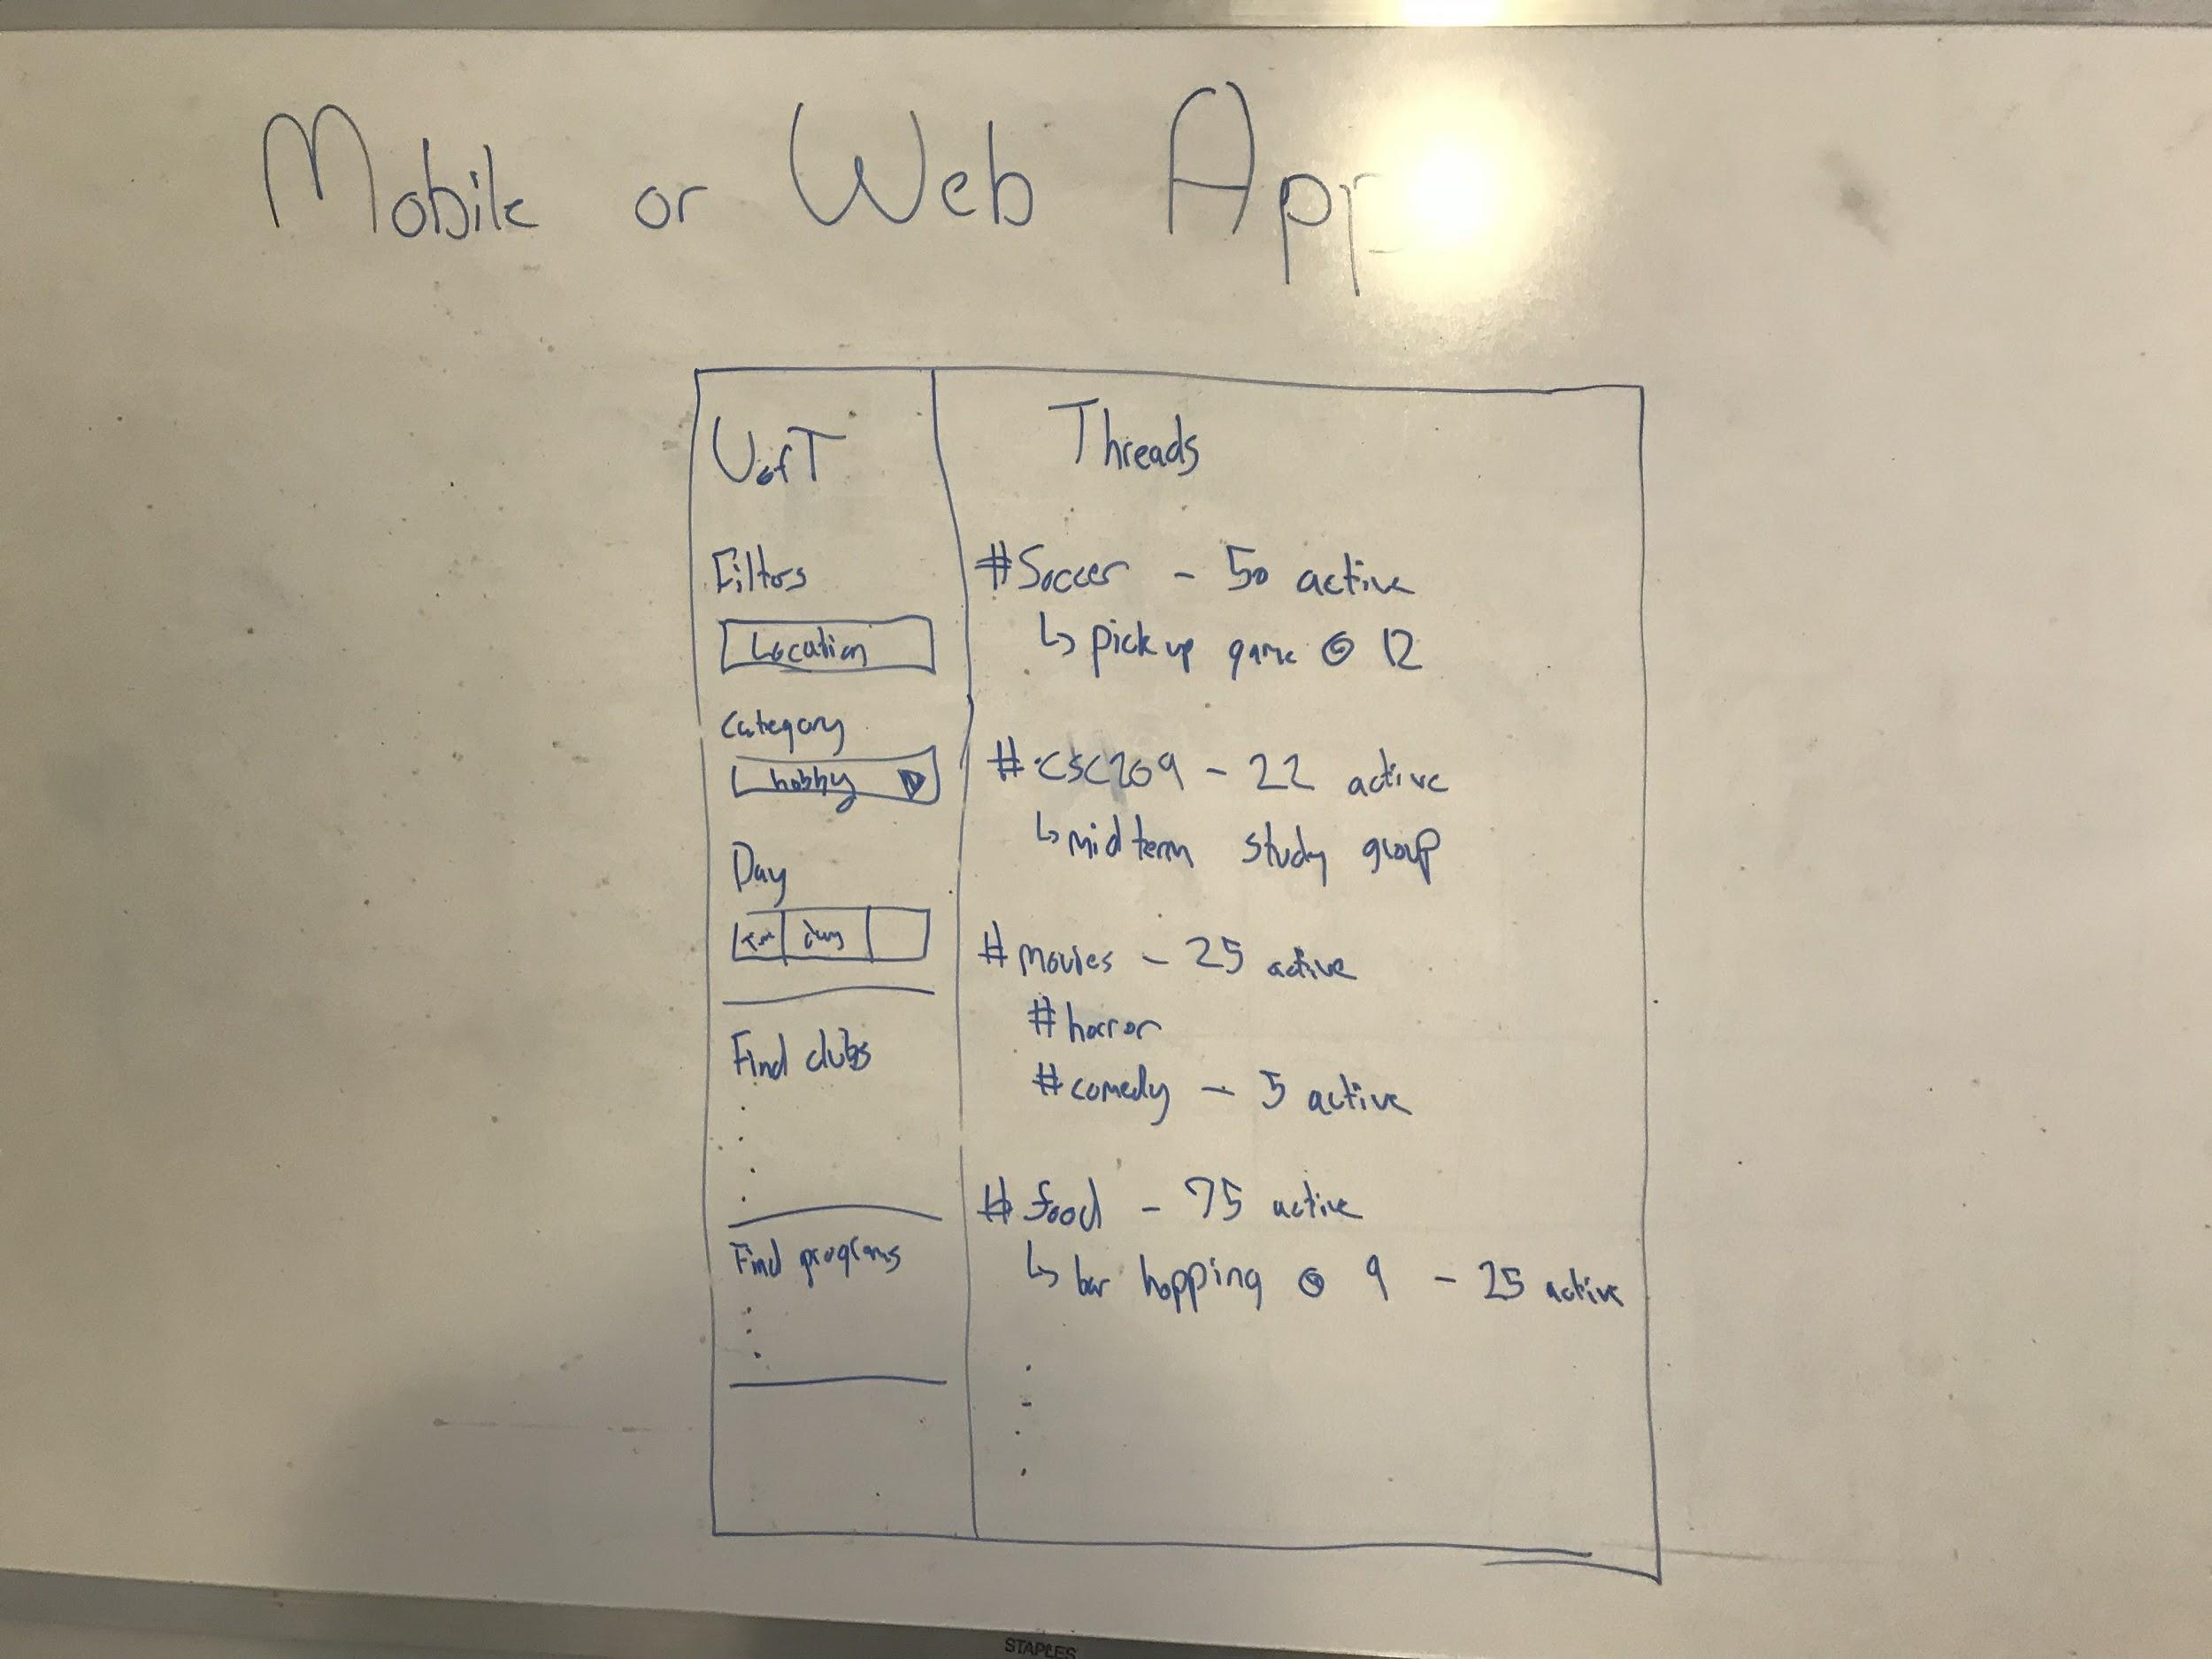 Mobile or Web App
UofT
Filters
Location
Category
hobby
Day
day
Find clubs
Find programs
Threads
#Soccer - 50 active
↳ pick up game @ 12
#CSC209 - 22 active
↳ midterm study group
#movies - 25 active
#horror
#comedy - 5 active
#food - 75 active
↳ bar hopping @ 9 - 25 active
STAPLES